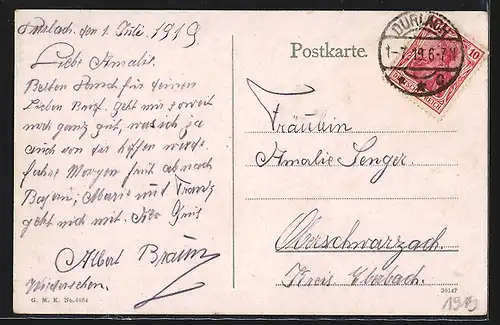 Durlach, den 1. Juli 1919
Liebe Amalie.
Besten Dank für deinen
lieben Brief. Geht mir soweit
noch ganz gut, was ich ja
auch von dir hoffen werde.
fahre Morgen früh ab nach
Bayern; Marie und Franz
geht nicht mit. Gruß
Albert Braun
Wiedersehen.
G. M. K. No.
Postkarte.
DURLACH
1-7 19 6-7
10
DEUTSCHES REICH
Fräulein
Amalie Senger
Oberschwarzach.
Kreis Eberbach.
30147
1919